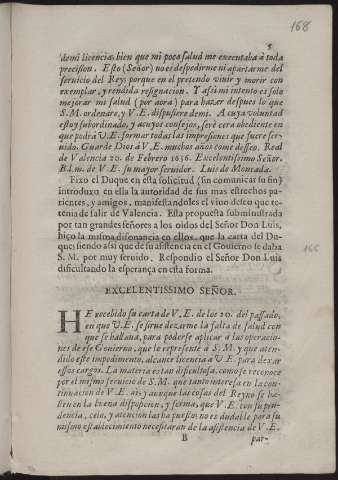 168
5
demi licencia, bien que mi poca salud me executaba à toda
precision. Esto (Señor) no es despedirme ni apartarme del
servicio del Rey; porque en el pretendo vivir y morir con
exemplar, y rendida resignacion. Y assi mi intento es solo
mejorar mi salud (por aora) para hazer despues lo que
S.M. ordenare, y V.E. dispusiere de mi. A cuya voluntad
estoy subordinado, y a cuyos consejos, serè cera obediente en
que podrà V.E. formar todas las impresiones que fuere ser-
vido. Guarde Dios à V.E. muchos años como desseo. Real
de Valencia 20. de Febrero 1656. Excelentissimo Señor.
B.l.m. de V.E. su mayor servidor. Luis de Moncada.
Fixo el Duque en esta solicitud (sin comunicar su fin)
introduxo en ella la autoridad de sus mas estrechos pa-
rientes, y amigos, manifestandoles el vivo deseo que te-
tenia de salir de Valencia. Esta propuesta subministrada
por tan grandes señores a los oidos del Señor Don Luis,
hiço la misma disonancia en ellos, que la carta del Du-
que; siendo assi que de su asistencia en el Govierno se daba
S. M. por muy servido. Respondio el Señor Don Luis
dificultando la esperança en esta forma.
166
EXCELENTISSIMO SEÑOR.
HE recebido su carta de V.E. de los 20. del passado,
en que V.E. se sirve dezirme la falta de salud con
que se hallava, para poderse aplicar a las operacio-
nes de esse Govierno, que lo represente à S.M. y que aten-
dido este impedimento, alcance licencia à V.E. para dexar
essos cargos. La materia es tan dificultosa, como se reconoce
por el mismo servicio de S.M. que tanto interesa en la con-
tinuacion de V.E. ai; y aunque las cosas del Reyno se ha-
llen en la buena disposicion, y forma, que V.E. con su pru-
dencia, celo, y atencion las ha puesto; no es dudable para su
mismo establecimiento necesitaran de la asistencia de V.E.
B
par-